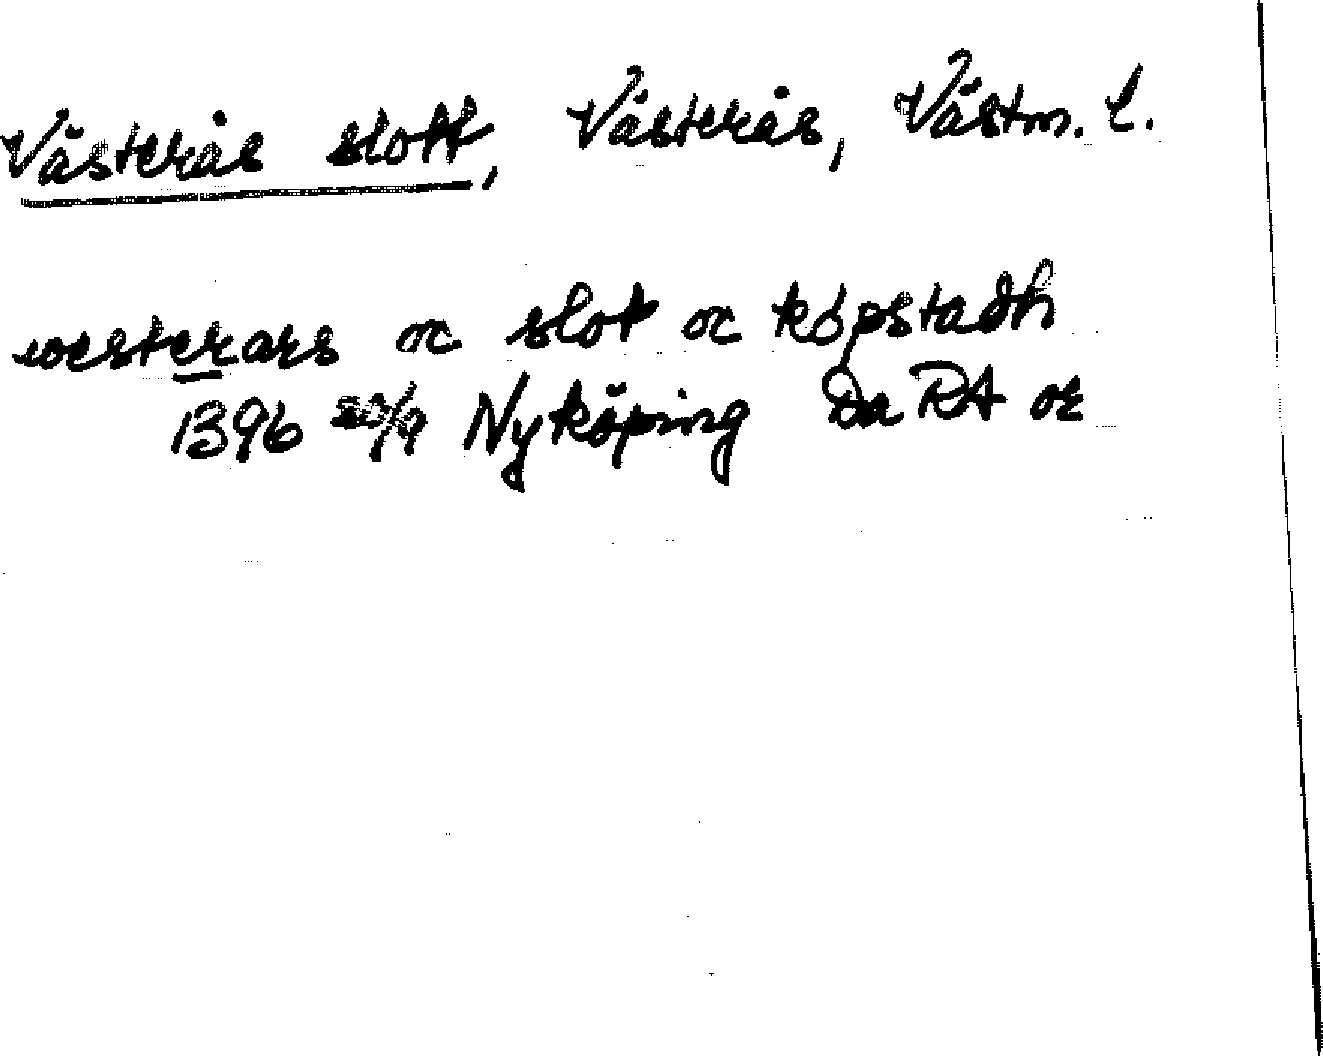 Västerås slott, Västerås, Västm. l.
westerars oc slot oc køpstadh
1396 20/9 Nyköping Da RA or